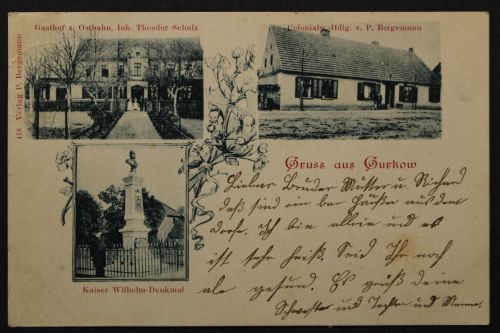 Gasthof z. Ostbahn, Inh. Theodor Schulz
Colonialw.-Hdlg. v. P. Bergemann
418 Verlag P. Bergemann
Gruss aus Gurkow
Lieber Bruder Mutter u. Richard
daß sind ein par Häußer aus dem
Dorfe. Ich bin allein und es
ist sehr heiß. Seid Ihr noch
ale gesund. Es grüß deine
Schwester und Tochter und Mamma.
Kaiser Wilhelm-Denkmal